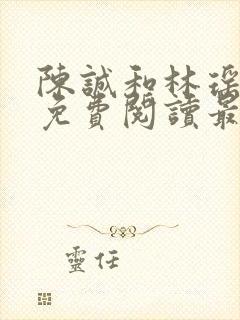 陳誠和林瑤
免費閱讀最
靈任